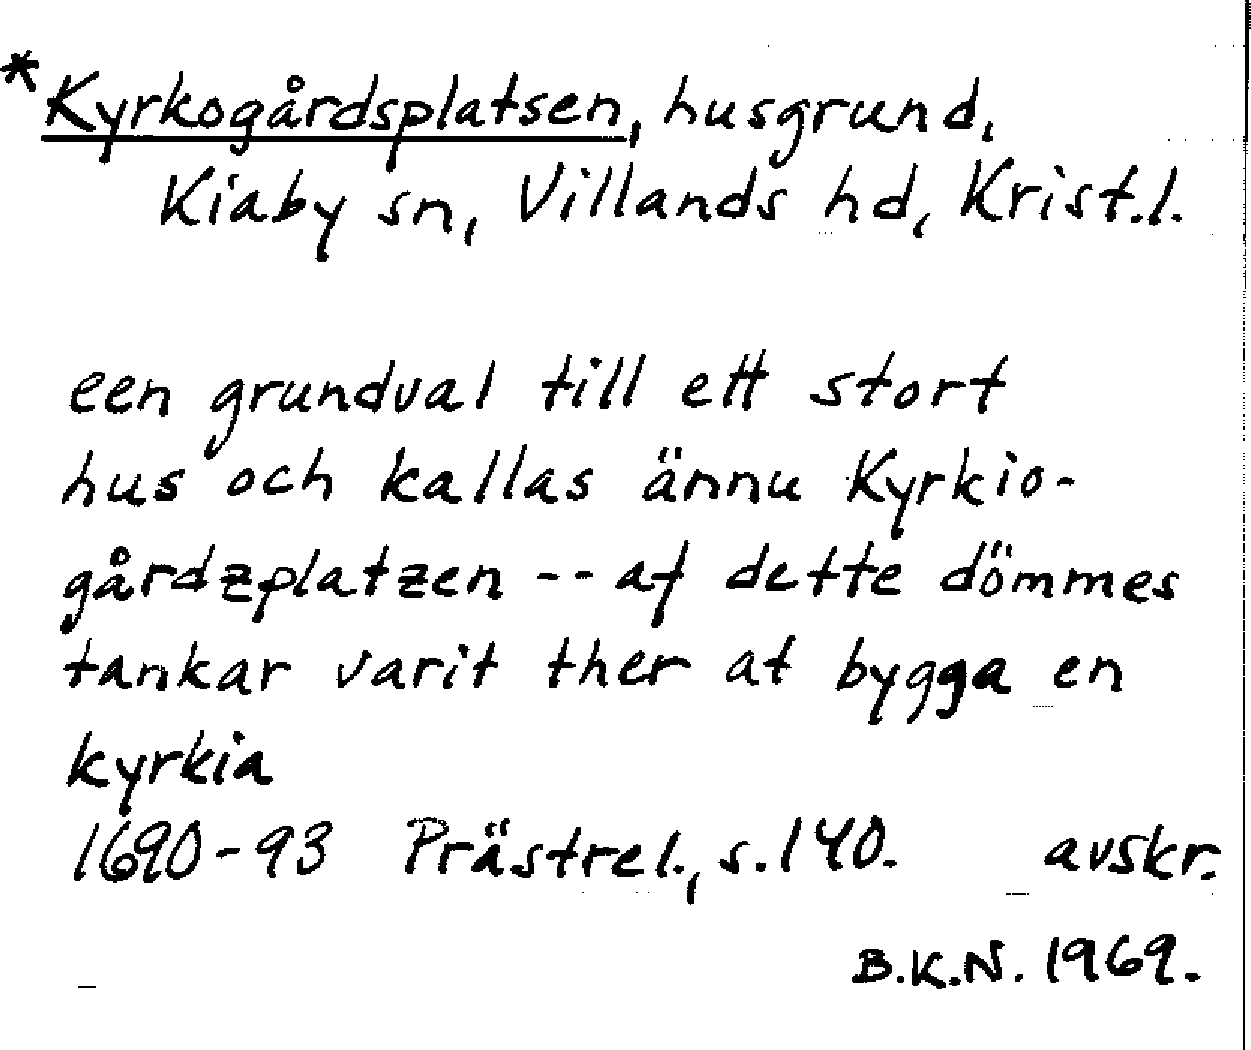 *Kyrkogårdsplatsen, husgrund,
Kiaby sn, Villands hd, Krist.l.
een grundval till ett stort
hus och kallas ännu Kyrkio-
gårdzplatzen -- af dette dömmes
tankar varit ther at bygga en
kyrkia
1690-93 Prästrel., s.140. avskr.
B.K.N. 1969.